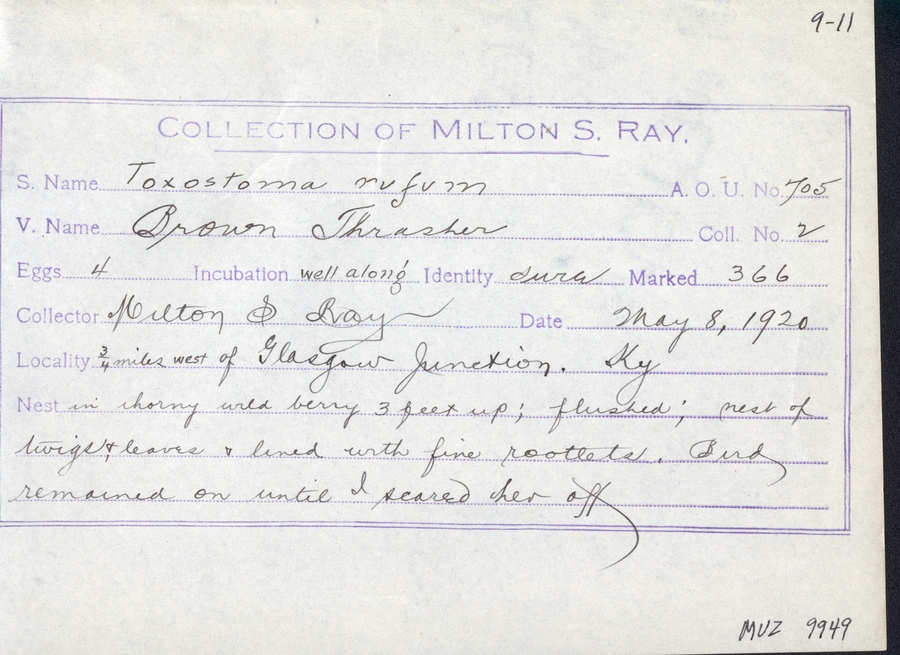 9-11
COLLECTION OF MILTON S. RAY.
S. Name Toxostoma rufum A. O. U. No. 705
V. Name Brown Thrasher Coll. No. 2
Eggs 4 Incubation well along Identity sure Marked 366
Collector Milton S Ray Date May 8, 1920
Locality 3/4 miles west of Glasgow Junction. Ky
Nest in thorny wild berry 3 feet up; flushed; nest of
twigs & leaves & lined with fine rootlets. Bird
remained on until I scared her off
MVZ 9949